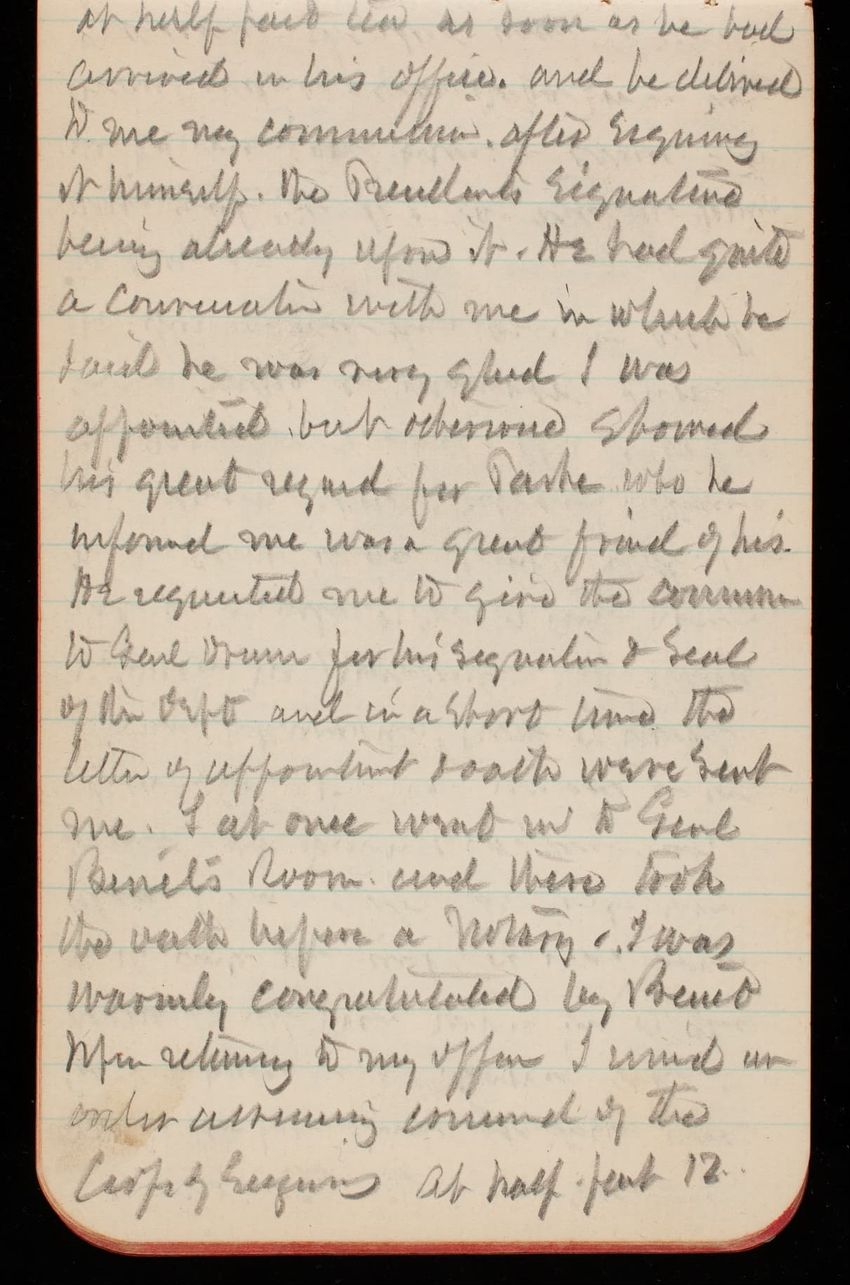 at half past ten as soon as he had
arrived in his office. and he delivered
to me my commission. after signing
it himself. the Presidents signature
being already upon it. He had quite
a conversation with me in which he
said he was very glad I was
appointed but otherwise showed
his great regard for Parke who he
informed me was a great friend of his.
He requested me to give the commission
to Genl Drum for his signature & seal
of the Dept and in a short time the
letter of appointment & oath were sent
me. I at once went in to Genl
Benét's Room and there took
the oath before a Notary. I was
warmly congratulated by Benét
Upon returning to my office I issued an
order assuming command of the
Corps of Engineers At half past 12.